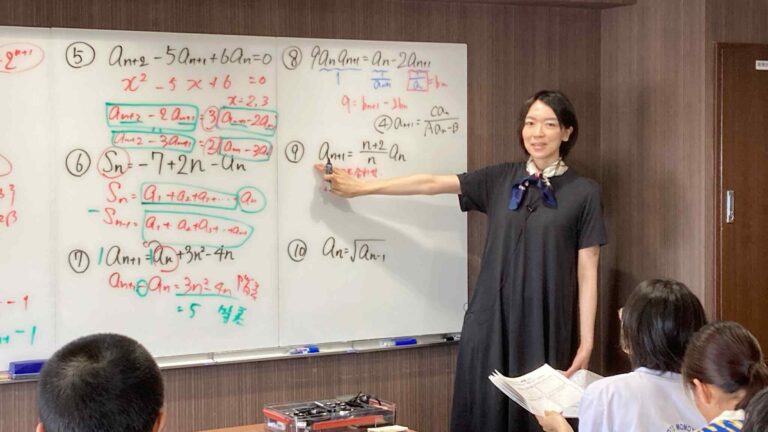 2^{n+1}
⑤ a_{n+2} - 5a_{n+1} + 6a_n = 0
x² - 5x + 6 = 0
x = 2, 3
a_{n+2} - 2a_{n+1} = 3(a_{n+1} - 2a_n)
a_{n+2} - 3a_{n+1} = 2(a_{n+1} - 3a_n)
⑥ S_n = -7 + 2n - a_n
S_n = a_1 + a_2 + a_3 + ... a_n
- S_{n-1} = a_1 + a_2 + a_3 + ... + a_{n-1}
⑦ 1 a_{n+1} = 1 a_n + 3n² - 4n
a_{n+1} - a_n = 3n² - 4n 階差
= 5
- 1
- 1
⑧ 9a_n a_{n+1} = a_n - 2a_{n+1}
= b_n
9 = b_{n+1} - 2b_n
④ a_{n+1} = Ca_n / Aa_n - B
⑨ a_{n+1} = n+2 / n a_n
⑩ a_n = √a_{n-1}